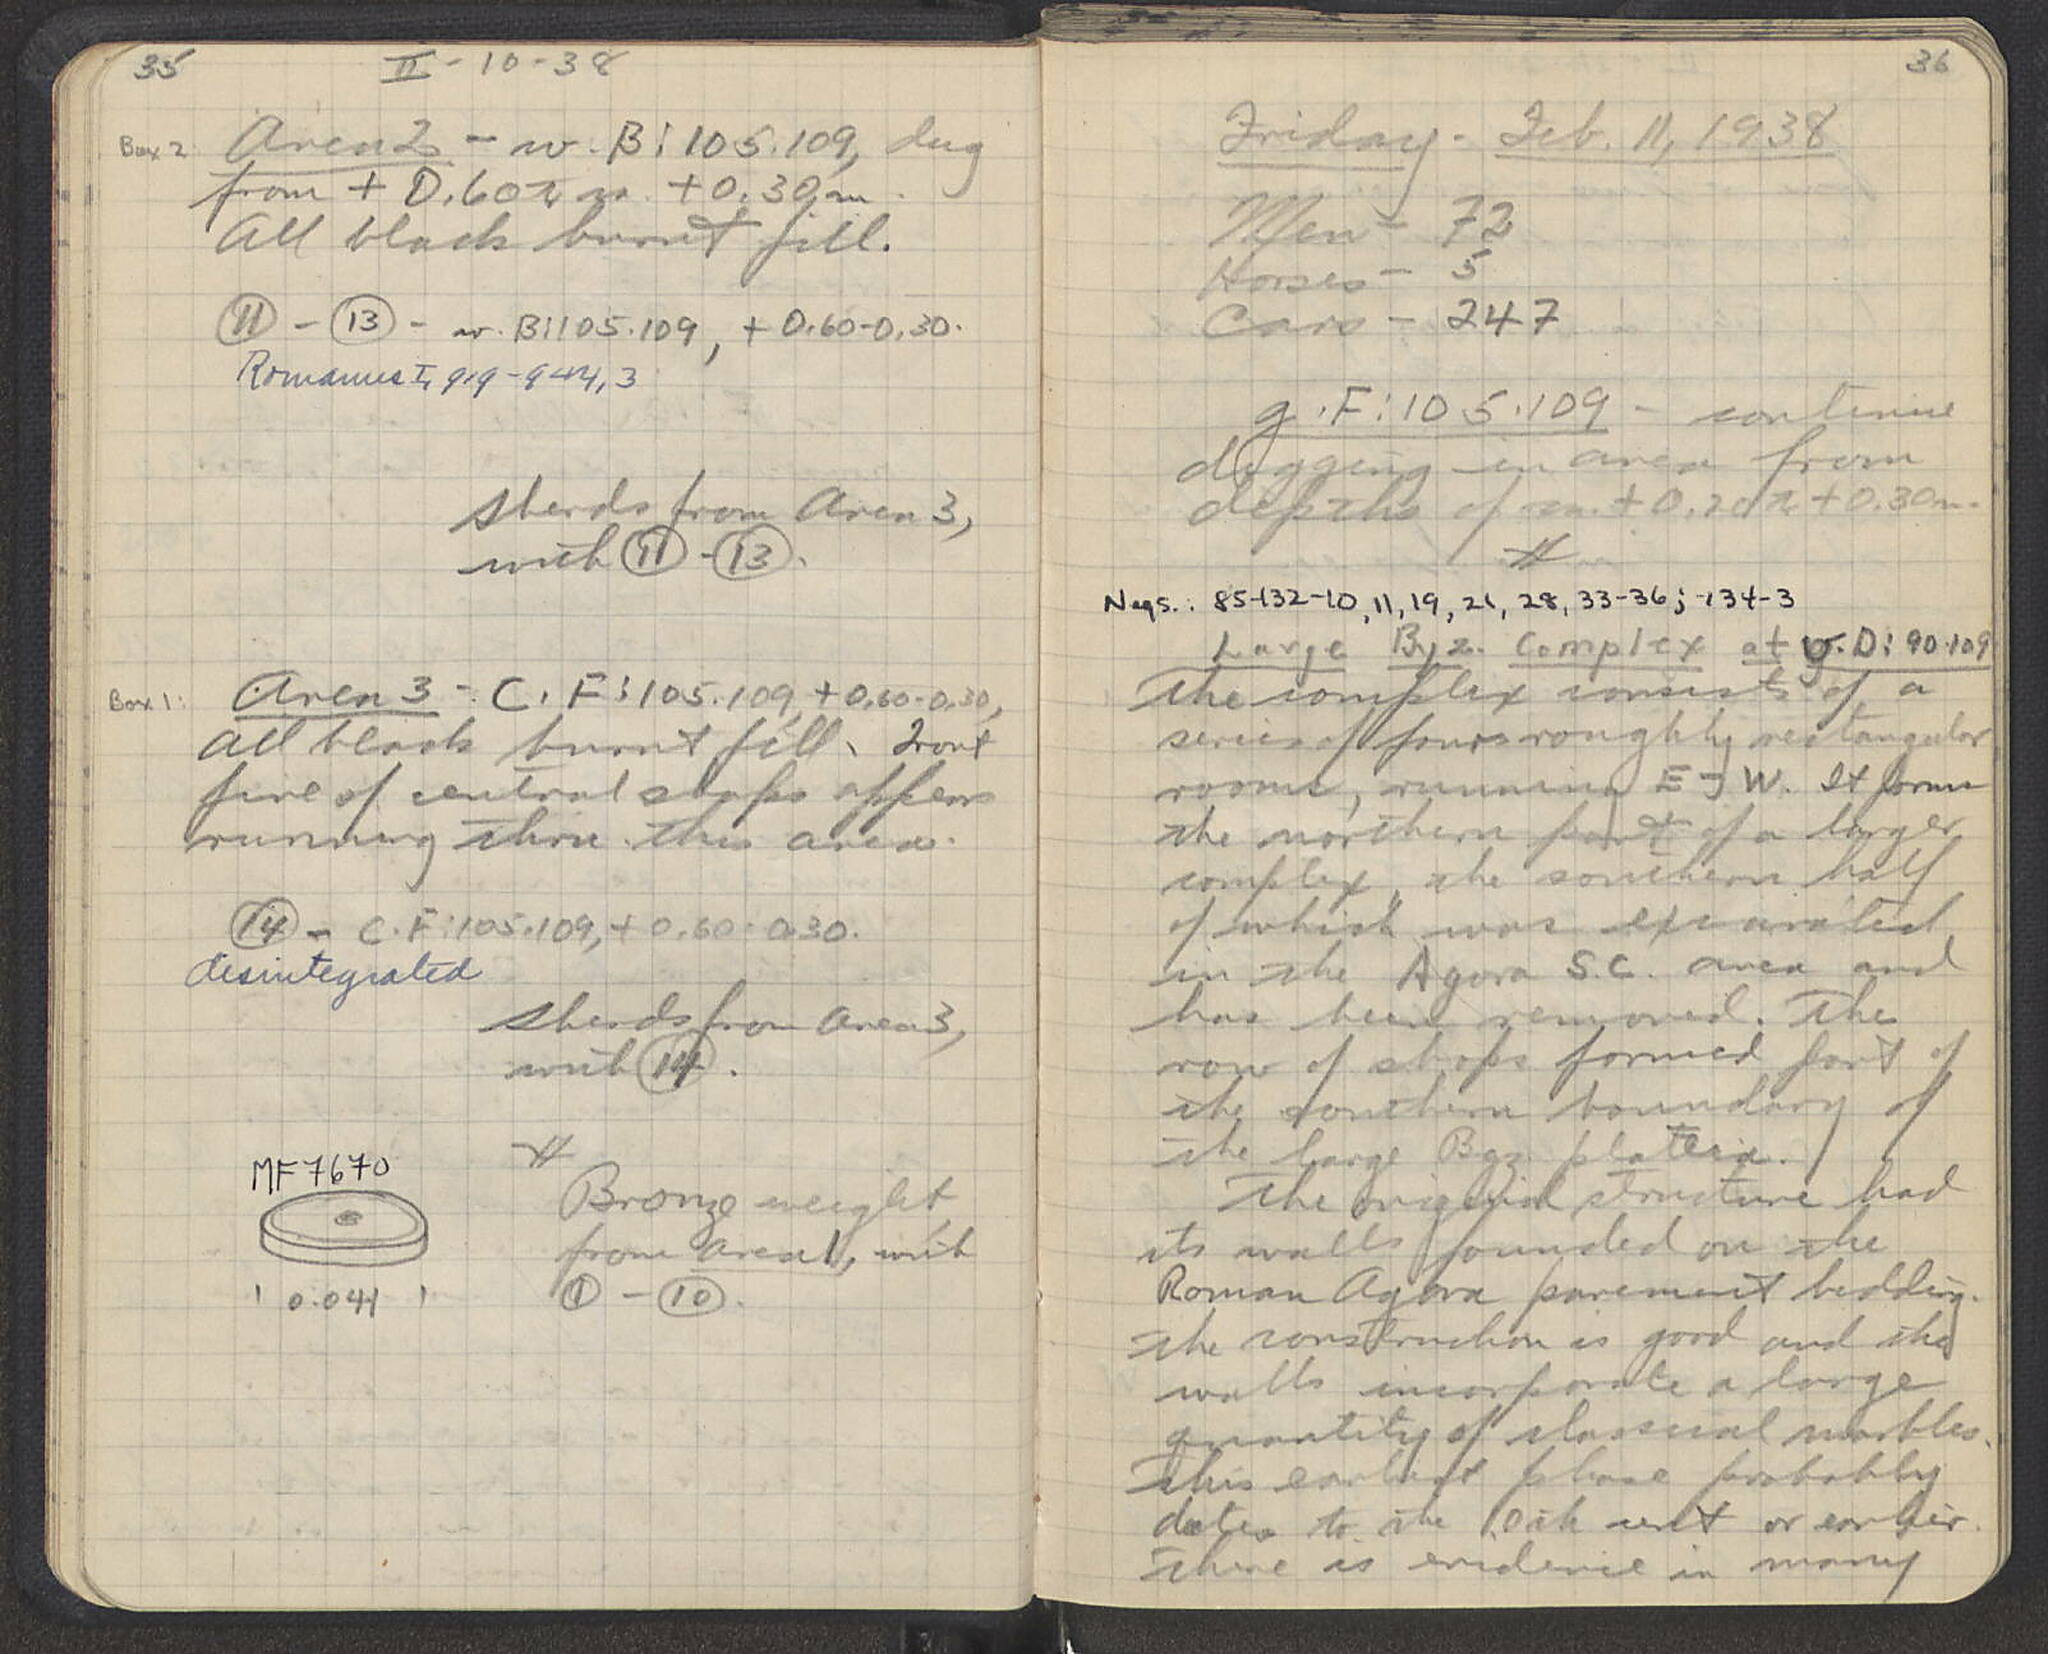 35
II - 10 - 38
Box 2:
Area 2 - w. B: 105.109, dug
from + 0.60 to m. +0.30 m.
All black burnt fill.
11 - 13 - w. B:105.109, + 0.60-0.30.
Romanus I, 919-944, 3
Sherds from Area 3,
with 11 - 13.
Box 1:
Area 3 - C. F: 105.109, +0.60-0.30,
all black burnt fill. Front
line of central shops appears
running thru this area.
14 - C. F: 105.109, + 0.60-0.30.
disintegrated
Sherds from Area 3,
with 14.
#
MF 7670
Bronze weight,
from area 1, with
1 - 10.
0.041
36
Friday - Feb. 11, 1938
Men - 72
Horses - 5
Cars - 247
g. F: 105.109 - continue
digging in area from
depths of m. + 0.20 to + 0.30 m.
#
Negs.: 85-132-10, 11, 19, 21, 28, 33-36; -134-3
Large Byz. Complex at D: 90.109
The complex consists of a
series of four roughly rectangular
rooms, running E-W. It forms
the northern part of a larger
complex, the southern half
of which was excavated
in the Agora S.C. area and
has been removed. The
row of shops formed part of
the southern boundary of
the large Byz. plateia.
The original structure had
its walls founded on the
Roman Agora pavement bedding.
The construction is good and the
walls incorporate a large
quantity of classical marbles.
This earliest phase probably
dates to the 10th cent or earlier.
There is evidence in many